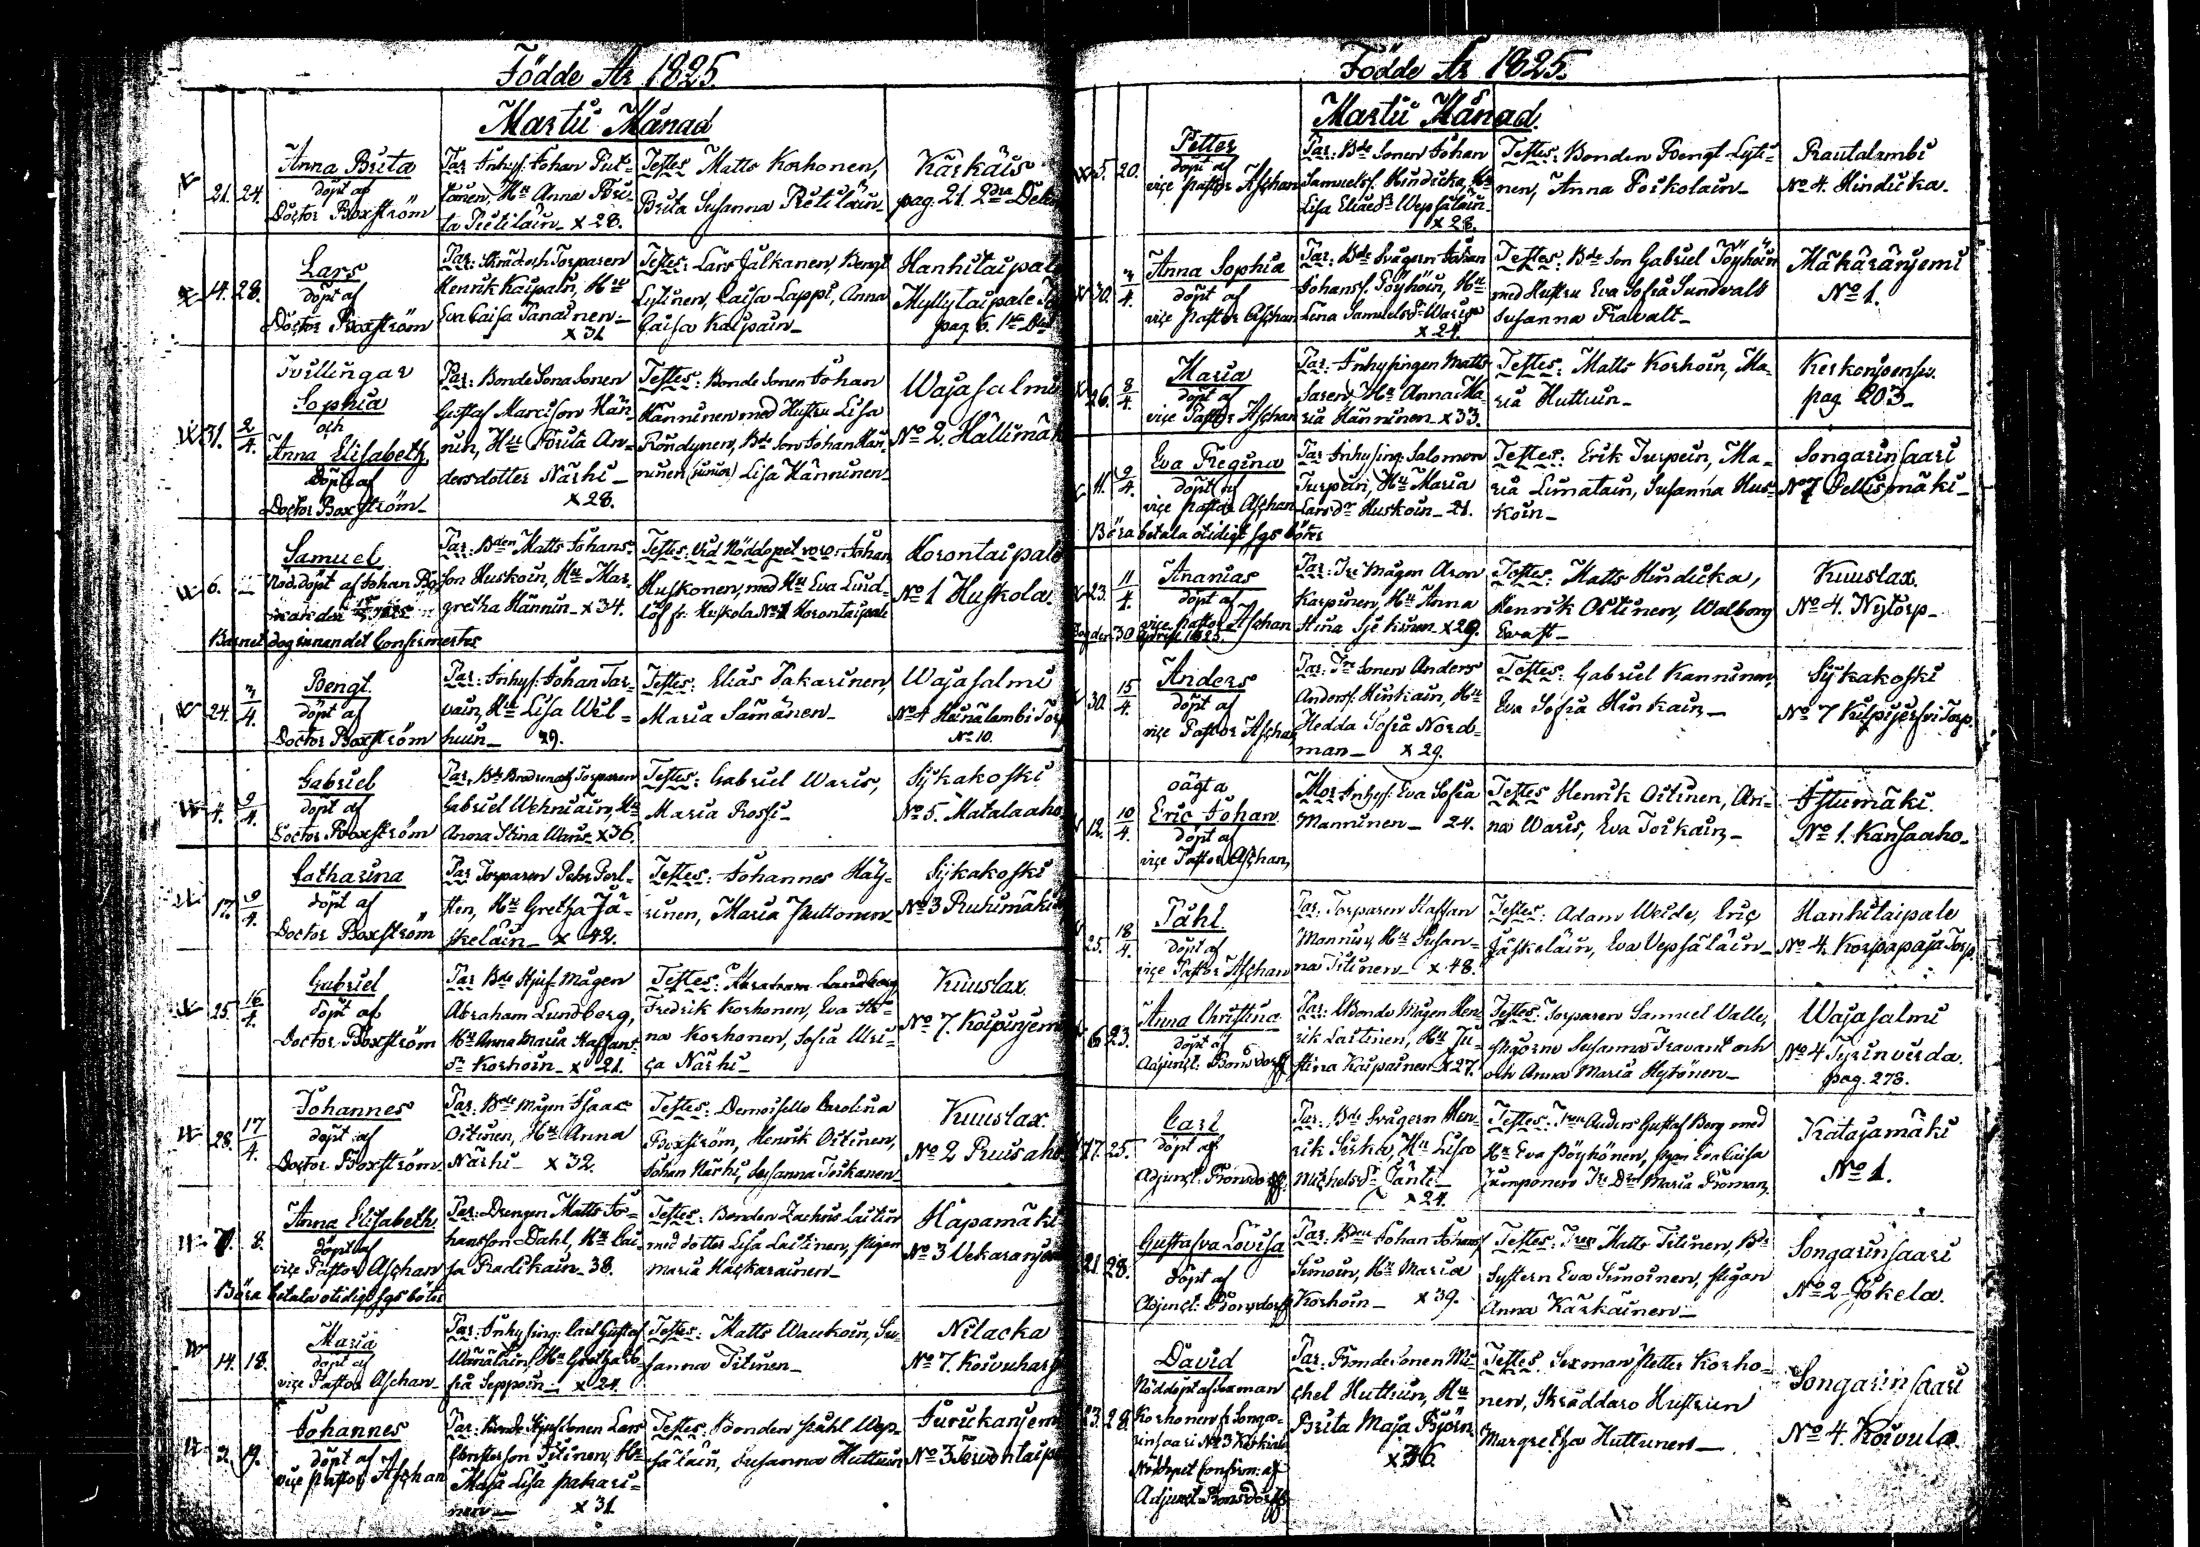 Födde År 1825.
Martii Månad
21. 24.
Anna Brita
döpt af
Doctor Boxström
Par: Inhys. Johan Put=
konen, Hu Anna Bri=
ta Pietiläin x 28.
Testes Matts Korhonen,
Brita Susanna Pietiläin
Kärkäis
pag. 21. 2dra
14. 28.
Lars
döpt af
Doctor Boxström
Par: Torparen
Henrik Kaipain, Hu
Eva Caisa Panainen
x 31
Testes: Lars Jalkanen, Bengt
Lytinen, Caisa Lappi, Anna
Caisa Kaipain
Hanhitaipale
Myllytaipale
pag 6.
31. 2/4.
Tvillingar
Sophia
och
Anna Elisabeth
Döpt af
Doctor Boxström
Par: Bonde Sona Sonen
Gustaf Marcison Hän=
nin, Hu Brita An=
dersdotter Närhi
x 28.
Testes: Bonde Sonen Johan
Hänninen med Hustru Lisa
Röndynen, Bde Son Johan Hän=
ninen (junior) Lisa Hänninen
Wajasalmi
No 2. Hällimäk
6.
Samuel
Nöd. döpt af Johan
Par: Bden Matts Johans=
son Huskoin, Hu Mar=
gretha Hännin x 34.
Testes: vid Nöddopet voro: Johan
Huskonen, med Hu Eva Lind=
löf fr. Huskola No 1 Korontaipale
Korontaipale
No 1 Huskola.
Barnet dog innan det Confirmertes
24. 3/4.
Bengt
döpt af
Doctor Boxström
Par: Inhys. Johan Tar=
vain, Hu Lisa Wil=
huin 29.
Testes: Elias Pakarinen,
Maria Sämänen
Wajasalmi
No 4 Heinälambi Torp
No 10.
4. 9/4.
Gabriel
döpt af
Doctor Boxström
Par: Bde Torparen
Gabriel Wehniäin, Hu
Anna Stina Waris x 36.
Testes: Gabriel Waris,
Maria Rossi
Sijkakoski
No 5. Matalaaho
17. 9/4.
Catharina
döpt af
Doctor Boxström
Par Torparen Pehr Perl=
tten, Hu Gretha Jä=
skeläin x 42.
Testes: Johannes Häy=
rinen, Maria Puttonen
Sijkakoski
No 3 Ruhimäki
25. 16/4.
Gabriel
döpt af
Doctor Boxström
Par Bde Styf Mågen
Abraham Lundberg,
Hu Anna Maria Staffans
dr Korhoin x 21.
Testes: Abraham Lundberg
Fredrik Korhonen, Eva Sti=
na Korhonen, Sofia Ulri=
ca Närhi
Kuuslax
No 7. Koipinjemi
28. 17/4.
Johannes
döpt af
Doctor Boxström
Par: Bde Mågen Isaac
Oitinen, Hu Anna
Närhi x 32.
Testes: Demoiselle Carolina
Boxström, Henrik Oitinen,
Johan Närhi, Susanna Toikanen
Kuuslax.
No 2 Ruusaho
7. 8.
Anna Elisabeth
döpt af
vice Pastor Aschan
Par: Drengen Matts Jo=
hansson Dahl, Hu Cai=
sa Radikain 38.
Testes: Bonden Zachris Laitin
med dotter Lisa Laitinen, pigan
Maria Hackarainen
Hapamäki
No 3 Vekaranjemi
Böra betala otidigt sgs böter
14. 18.
Maria
döpt af
vice Pastor Aschan
Par: Inhysing: Carl Gustaf
Wänäläin, Hu Gretha So
fia Seppoin x 24.
Testes: Matts Waukoin, Su=
sanna Titinen
Nilacka
No 7. Koivuharju
3. 19.
Johannes
döpt af
vice Pastor Aschan
Par: Bonde Styfsonen Lars
Christersson Titinen, Hu
Maja Lisa Pakari=
nen x 31
Testes: Bonden Påhl Wep=
säläin, Susanna Huttuin
Surukanjemi
No 3 Torvontaipale
Födde År 1825.
Martii Månad.
5. 20.
Petter
döpt af
vice pastor Aschan
Par: Bde Sonen Johan
Samuelss. Hindicka, Hu
Lisa Eliaedr Wepsäläin
x 28.
Testes: Bonden Bengt Lyti=
nen, Anna Poikolain
Rautalambi
No 4. Hindicka.
30. 3/4.
Anna Sophia
döpt af
vice pastor Aschan
Par: Bde Svågern Johan
Johanss. Pöyhöin, Hu
Lena Samuelsdr Waris
x 24.
Testes: Bde Son Gabriel Pöyhöin
med Hustru Eva Sofia Sundvall
Susanna Travalt
Mäkäränjemi
No 1.
26. 8/4.
Maria
döpt af
vice Pastor Aschan
Par: Inhysingen Matts
Saren, Hu Anna Ma
ria Hänninen x 33.
Testes: Matts Korhoin, Ma=
ria Huttuin
Kerkonjoensu.
pag 203
11. 9/4.
Eva Regina
döpt af
vice pastor Aschan
Par Inhysing: Salomon
Turpein, Hu Maria
Larsdr Huskoin 21.
Testes: Erik Turpein, Ma=
ria Limatain, Susanna Hus=
koin
Songarinsaari
No 7 Pellismäki
Böra betala otidigt sgs böter
23. 11/4.
Ananias
döpt af
vice pastor Aschan
Par: Tre Mågen Aron
Karpinen, Hu Anna
Stina Sjekinen x 29.
Testes: Matts Hindicka,
Henrik Oitinen, Walborg
Evast
Kuuslax.
No 4. Nytorp
Dog den 30 Aprill 1825.
30. 15/4.
Anders
döpt af
vice Pastor Aschan
Par: Tre Sonen Anders
Anderss. Hinkain, Hu
Hedda Sofia Nord=
man x 29.
Testes: Gabriel Kanninen,
Eva Sofia Hinkain
Sijkakoski
No 7 Kilpijerfvi Torp.
12. 10/4.
oägta
Eric Johan
döpt af
vice Pastor Aschan,
Mor Inhys. Eva Sofia
Manninen 24.
Testes Henrik Oitinen, An=
na Waris, Eva Toikain
Istumäki.
No 1. Kansaaho
25. 18/4.
Påhl
döpt af
vice Pastor Aschan
Par: Torparen Staffan
Monnin, Hu Susan=
na Titinen x 48.
Testes: Adam Weide, Eric
Jäskeläin, Eva Vepsäläin
Hanhitaipale
No 4. Korpapaja Torp.
6. 23.
Anna Christina
döpt af
Adjunct. Bonsdorff
Par: Bonde Mågen Hen=
rik Laitinen, Hu Ju=
stina Kaipainen x 27.
Testes: Torparen Samuel Valle,
pigorne Susanna Travant och
och Anna Maria Hytönen
Wajasalmi
No 4 Tyrinvirda.
pag. 278.
17. 25.
Carl
döpt af
Adjunct. Bonsdorff.
Par: Bde Svågern Hen=
rik Sirka, Hu Lisa
Michelsdr Jänti
x 24.
Testes: Tren Anders Gustaf Berg med
Hu Eva Pöyhönen, pigan Eva Caisa
Kumponen Tre Drn Maria Froman.
Katajamäki
No 1.
21. 28.
Gustafva Lovisa
döpt af
Adjunct: Bonsdorff
Par: Bden Johan Johanss
Simoin, Hu Maria
Korhoin x 39.
Testes: Tren Matts Titinen, Bde
Systern Eva Simoinen, pigan
Anna Kärkäinen
Songarinsaari
No 2 Jokela.
23. 28.
David
Nöddöpt af Sexman
Korhonen fr Songa=
rinsaari No 3
Nöddopet Confirm: af
Adjunct Bonsdorff
Par: Bonde Sonen Mi=
chel Huttuin, Hu
Brita Maja Björn
x 36.
Testes: Sexman Petter Korho=
nen, Skräddare Hustrun
Margretha Huttunen
Songarinsaari
No 4. Koivula.